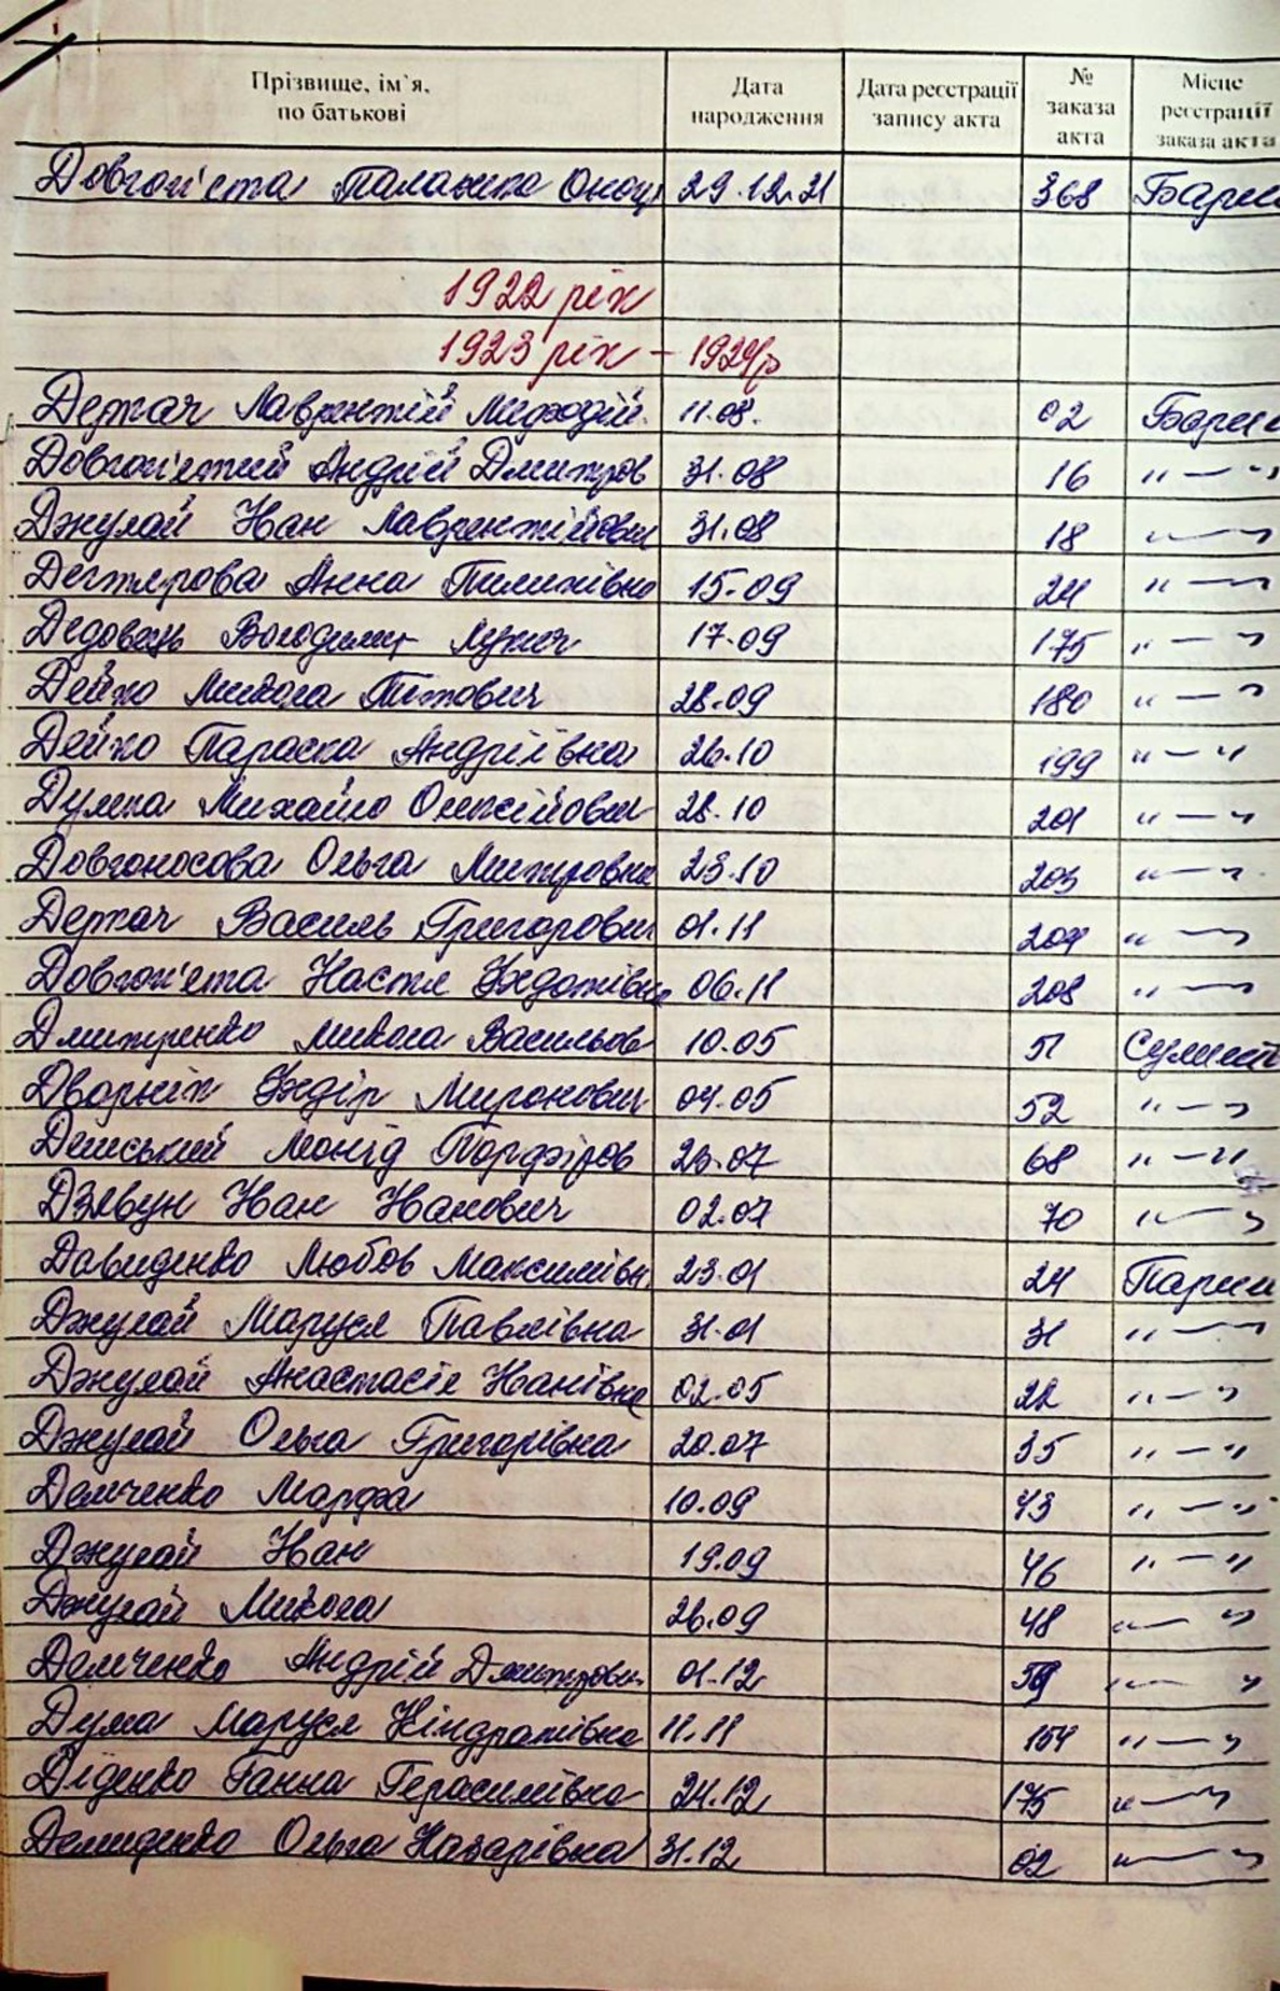 Прізвище, ім`я, по батькові Дата народження Дата реєстрації запису акта № заказа акта Місце реєстрації заказа акта
Довгоп'ета Палажка 29.12.21 368 Бари
1922 рік
1923 рік - 1924р
Деркач Лаврентій Мефодій. 11.08. 02 Бари
Довгоп'етий Андрій Дмитров 31.08 16 " — "
Джулай Іван Лаврентійович 31.08 18 " — "
Дегтярова Анна Пилипівна 15.09 24 " — "
Дедовець Володимир Лукич 17.09 175 " — "
Дейко Микола Титович 28.09 180 " — "
Дейко Параска Андріївна 26.10 199 " — "
Думка Михайло Олексійович 28.10 201 " — "
Довгоносова Ольга Митровна 23.10 203 " — "
Деркач Василь Григорович 01.11 204 " — "
Довгоп'ета Настя Федотівна 06.11 208 " — "
Дмитренко Микола Васильов 10.05 51
Дворнік Федір Миронович 04.05 52 " — "
Демський Леонід Порфіров 23.07 68 " — "
Дзябун Іван Іванович 02.07 70 " — "
Давиденко Любов Максимівн 23.01 24 Пари
Джулай Маруся Павлівна 31.01 31 " — "
Джулай Анастасія Іванівна 02.05 22 " — "
Джулай Ольга Григорівна 20.07 35 " — "
Демченко Марфа 10.09 43 " — "
Джулай Іван 19.09 46 " — "
Джулай Микола 26.09 48 " — "
Демченко Андрій Дмитрович 01.12 59 " — "
Дума Маруся Кіндратівна 11.11 154 " — "
Діденко Ганна Герасимівна 24.12 175 " — "
Демиденко Ольга Назарівна 31.12 02 " — "